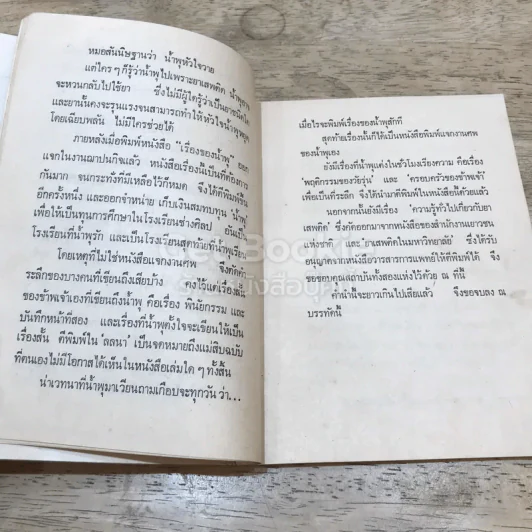 หมอสันนิษฐานว่า น้ำพุหัวใจวาย
แต่ใครๆ ก็รู้ว่าน้ำพุไปเพราะยาเสพติด น้ำพุ
จะหวนกลับไปใช้ยา ซึ่งไม่มีผู้ใดรู้ว่าเป็นยาชนิดใด
และยานั้นคงจะรุนแรงจนสามารถทำให้หัวใจน้ำพุหยุด
โดยเฉียบพลัน ไม่มีใครช่วยได้
ภายหลังเมื่อพิมพ์หนังสือ "เรื่องของน้ำพุ" ออก
แจกในงานฌาปนกิจแล้ว หนังสือเรื่องนี้เป็นที่ต้องการ
กันมาก จนกระทั่งที่มีเหลือไว้ก็หมด จึงได้ตีพิมพ์ขึ้น
อีกครั้งหนึ่ง และออกจำหน่าย เก็บเงินสมทบทุน 'น้ำพุ'
เพื่อให้เป็นทุนการศึกษาในโรงเรียนช่างศิลป อันเป็น
โรงเรียนที่น้ำพุรัก และเป็นโรงเรียนสุดท้ายที่น้ำพุเรียน
โดยเหตุที่ไม่ใช่หนังสือแจกงานศพ จึงตัดคำ
ระลึกของบางคนที่เขียนถึงเสียบ้าง คงไว้แต่เรื่องสั้น
ของข้าพเจ้าเองที่เขียนถึงน้ำพุ คือเรื่อง พินัยกรรม และ
บันทึกหน้าที่สอง และเรื่องที่น้ำพุตั้งใจจะเขียนให้เป็น
เรื่องสั้น ตีพิมพ์ใน 'ลลนา' เป็นจดหมายถึงแม่สิบฉบับ
ที่ตนเองไม่มีโอกาสได้เห็นในหนังสือเล่มใดๆ ทั้งสิ้น
น่าเวทนาที่น้ำพุมาเวียนถามเกือบจะทุกวัน ว่า...
เมื่อไรจะพิมพ์เรื่องของน้ำพุสักที
สุดท้ายเรื่องนั้นก็ได้เป็นหนังสือพิมพ์แจกงานศพ
ของน้ำพุเอง
ยังมีเรื่องที่น้ำพุแต่งในชั่วโมงเรียงความ คือเรื่อง
"พฤติกรรมของวัยรุ่น" และ "ครอบครัวของข้าพเจ้า"
เพื่อเป็นที่ระลึก จึงได้นำมาตีพิมพ์ในหนังสือนี้ด้วยแล้ว
นอกจากนั้นยังมีเรื่อง "ความรู้ทั่วไปเกี่ยวกับยา
เสพติด" ซึ่งคัดออกมาจากหนังสือของสำนักงานเยาวชน
แห่งชาติ และ "ยาเสพติดในมหาวิทยาลัย" ซึ่งได้รับ
อนุญาตจากหนังสือวารสารการแพทย์ให้ตีพิมพ์ได้ จึง
ขอขอบคุณสถาบันทั้งสองแห่งไว้ด้วย ณ ที่นี้
คำนำนี้จะยาวเกินไปเสียแล้ว จึงขอจบลง ณ
บรรทัดนี้